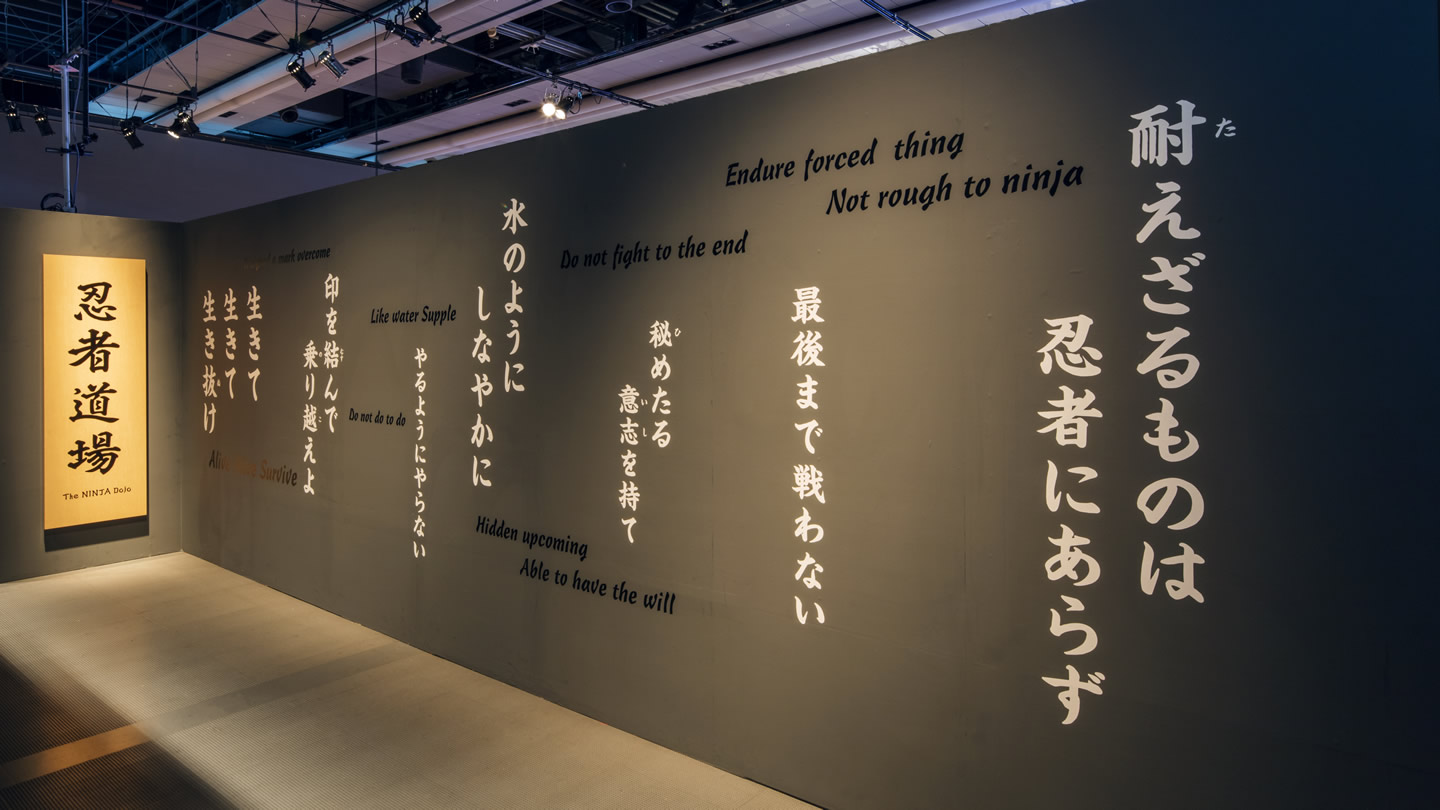 耐えざるものは
た
忍者にあらず
Endure forced thing
Not rough to ninja
最後まで戦わない
Do not fight to the end
秘めたる
ひ
意志を持て
いし
Hidden upcoming
Able to have the will
水のように
しなやかに
Like water Supple
やるようにやらない
Do not do to do
印を結んで
乗り越えよ
overcome
生きて
生きて
生き抜け
Survive
忍者道場
The NINJA DoJo